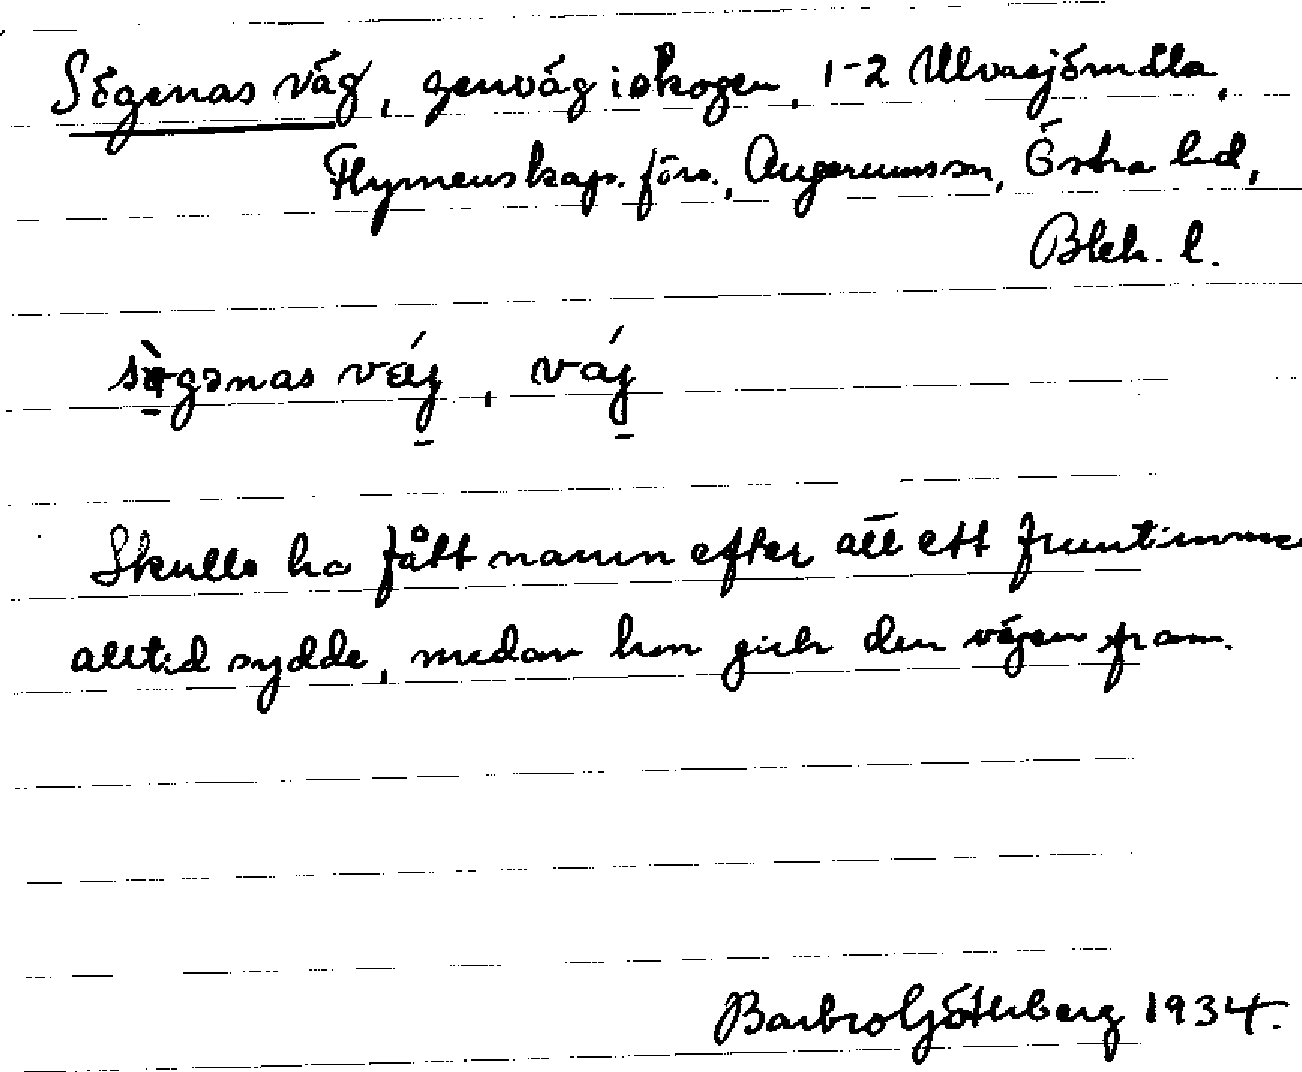 Sögenas väg, genväg i skogen, 1-2 Ulvasjömåla,
Flymens kap. förs., Augerums sn, Östra hd,
Blek. l.
väj, váj
Skulle ha fått namn efter att ett fruntimmer
alltid sydde, medan hon gick den vägen fram.
Barbro Götherberg 1934.